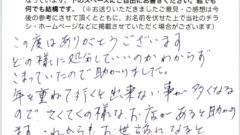 何でも結構です。(※お送りいただきましたご意見・ご感想は今
後の参考にさせて頂くとともに、お名前を伏せた上で当社のチラ
シ・ホームページなどに掲載させていただく場合がございます)
この度はありがとうございます
どの様に処分していいのかわからず
こまっていたので助かりました。
年を重ねて行くと出来ない事が多くなる
ので てくてくの様なお店があると助かり
ます これからもお世話になると